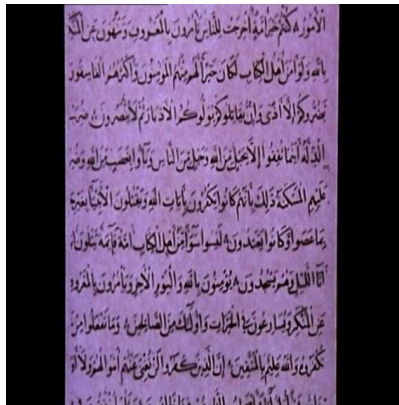 الامور كنتم خير امة اخرجت للناس تامرون بالمعروف وتنهون عن المنكر
بالله ولو امن اهل الكتاب لكان خيرا لهم منهم المومنون واكثرهم الفاسقون
يضروكم الا اذى وان يقاتلوكم يولوكم الادبار ثم لا ينصرون ضربت
الذلة اينما ثقفوا الا بحبل من الله وحبل من الناس وباوا بغضب من الله وضر
عليهم المسكنة ذلك بانهم كانوا يكفرون بايات الله ويقتلون الانبيا بغير
بما عصوا وكانوا يعتدون ليسوا سوا من اهل الكتاب امة قايمة يتلون
انا الليل وهم يسجدون يومنون بالله واليوم الاخر ويامرون بالمعرو
عن المنكر ويسارعون في الخيرات واوليك من الصالحين وما تفعلوا من
تكفروه والله عليم بالمتقين ان الذين كفروا لن تغني عنهم اموالهم ولا او